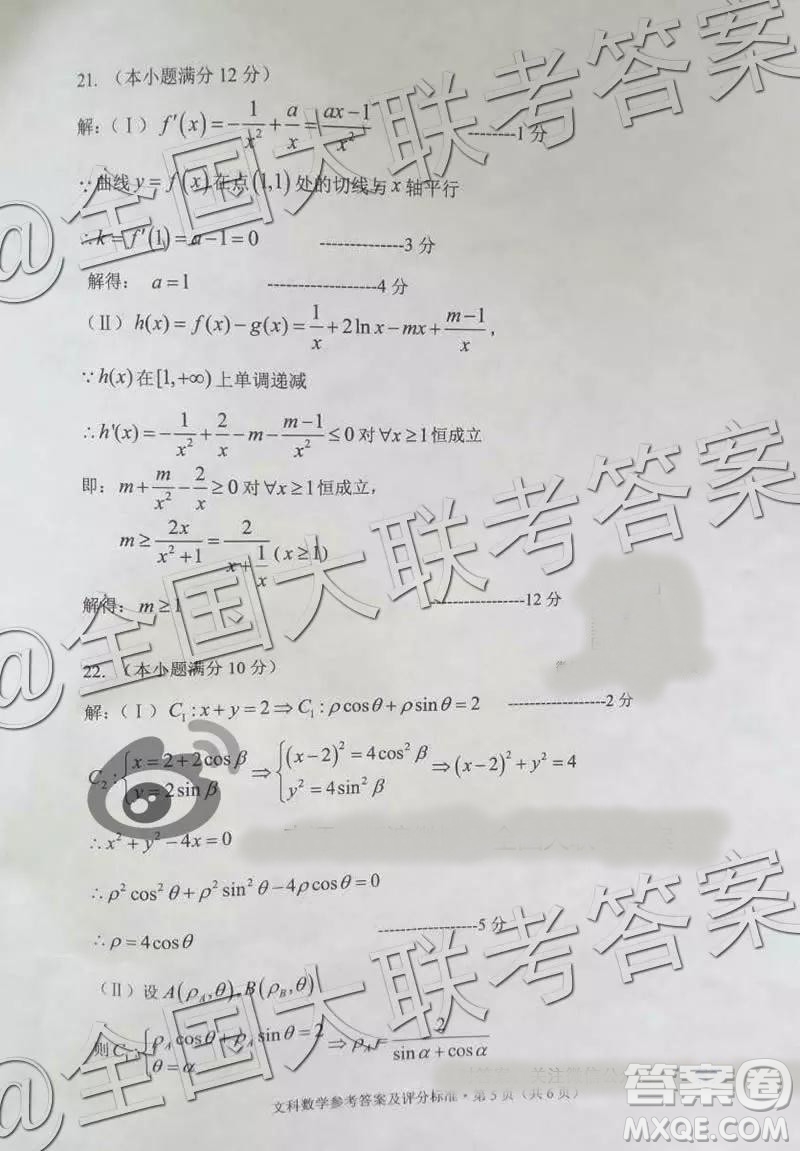 21. （本小题满分12分）
解：（Ⅰ）f′(x)=-1/x²+a/x=(ax-1)/x² --------1分
∵曲线y=f(x)在点(1,1)处的切线与x轴平行
∴k=f′(1)=a-1=0 --------------3分
解得： a=1 ------------------4分
（Ⅱ）h(x)=f(x)-g(x)=1/x+2ln x-mx+(m-1)/x，
∵h(x)在[1,+∞)上单调递减
∴h'(x)=-1/x²+2/x-m-(m-1)/x²≤0对∀x≥1恒成立
即：m+m/x²-2/x≥0对∀x≥1恒成立，
m≥2x/(x²+1)=2/(x+1/x)(x≥1)
解得：m≥1 ----------------12分
22. （本小题满分10分）
解：（Ⅰ）C₁:x+y=2⇒C₁:ρcosθ+ρsinθ=2 ----------------2分
C₂:{x=2+2cosβ y=2sinβ ⇒{(x-2)²=4cos²β y²=4sin²β ⇒(x-2)²+y²=4
∴x²+y²-4x=0
∴ρ²cos²θ+ρ²sin²θ-4ρcosθ=0
∴ρ=4cosθ ------------------5分
（Ⅱ）设A(ρ_A,θ),B(ρ_B,θ)
则C₁:{ρ_A cosθ+ρ_A sinθ=2 θ=α ⇒ρ_A=2/(sinα+cosα)
文科数学参考答案及评分标准·第5页（共6页）
@全国大联考答案
@全国大联考答案
@全国大联考答案
答案圈
MXQE.COM